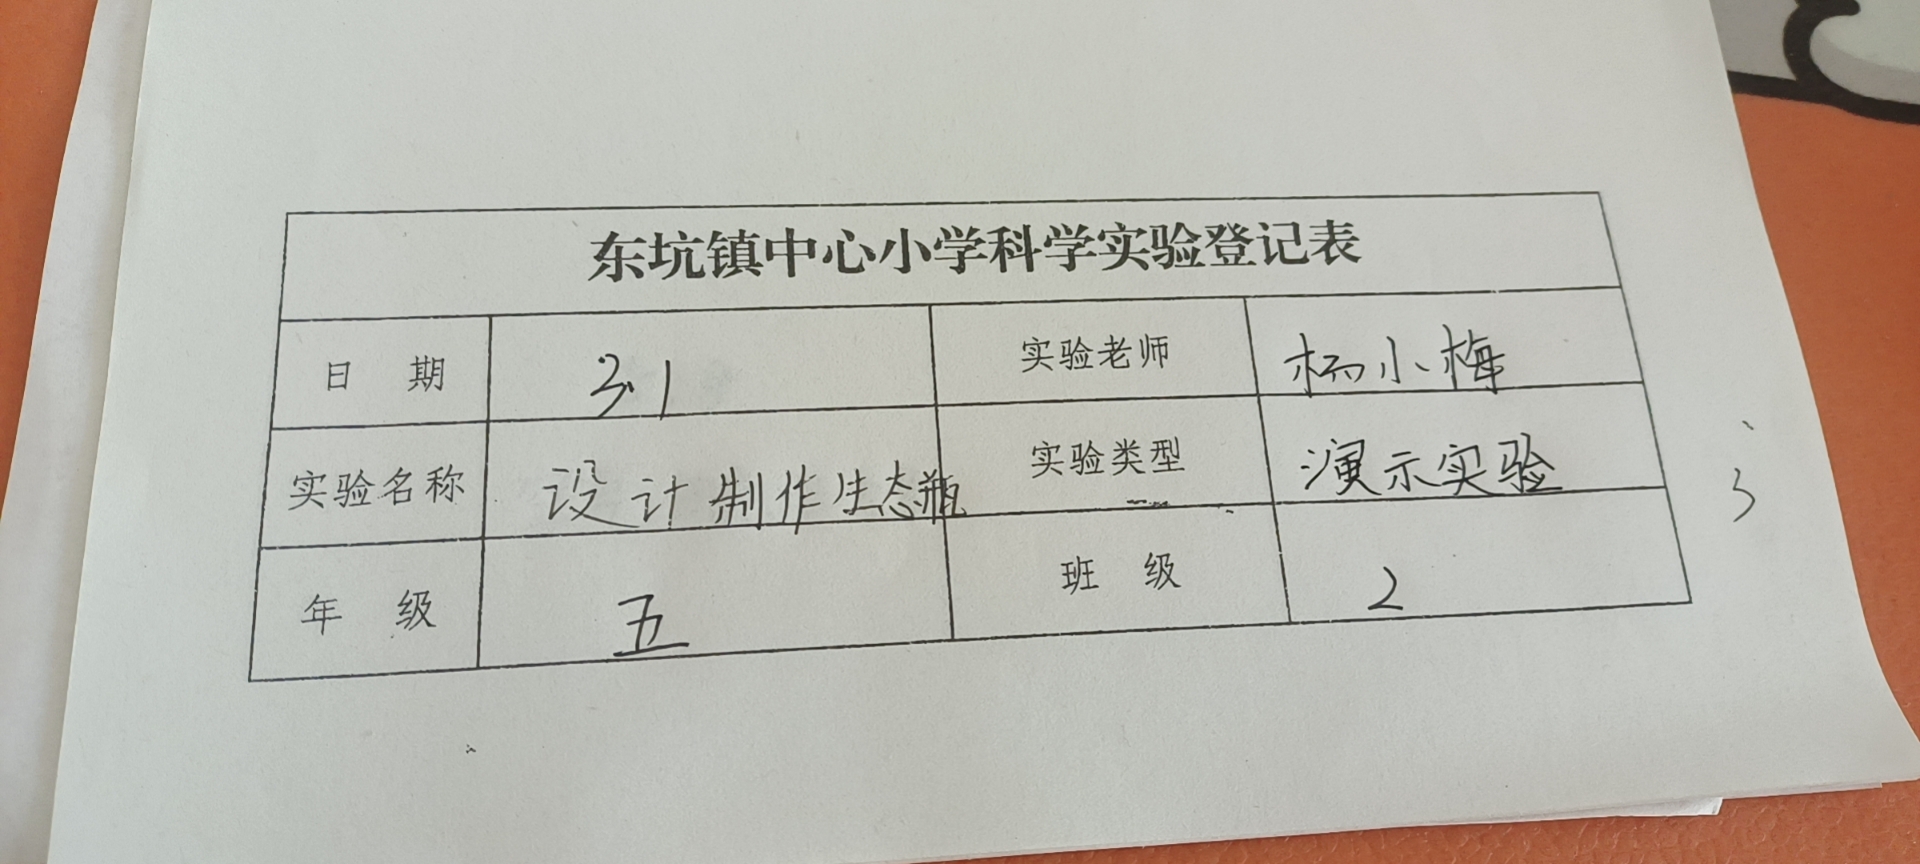 东坑镇中心小学科学实验登记表
日 期 3.1 实验老师 杨小梅
实验名称 设计制作生态瓶 实验类型 演示实验
年 级 五 班 级 2